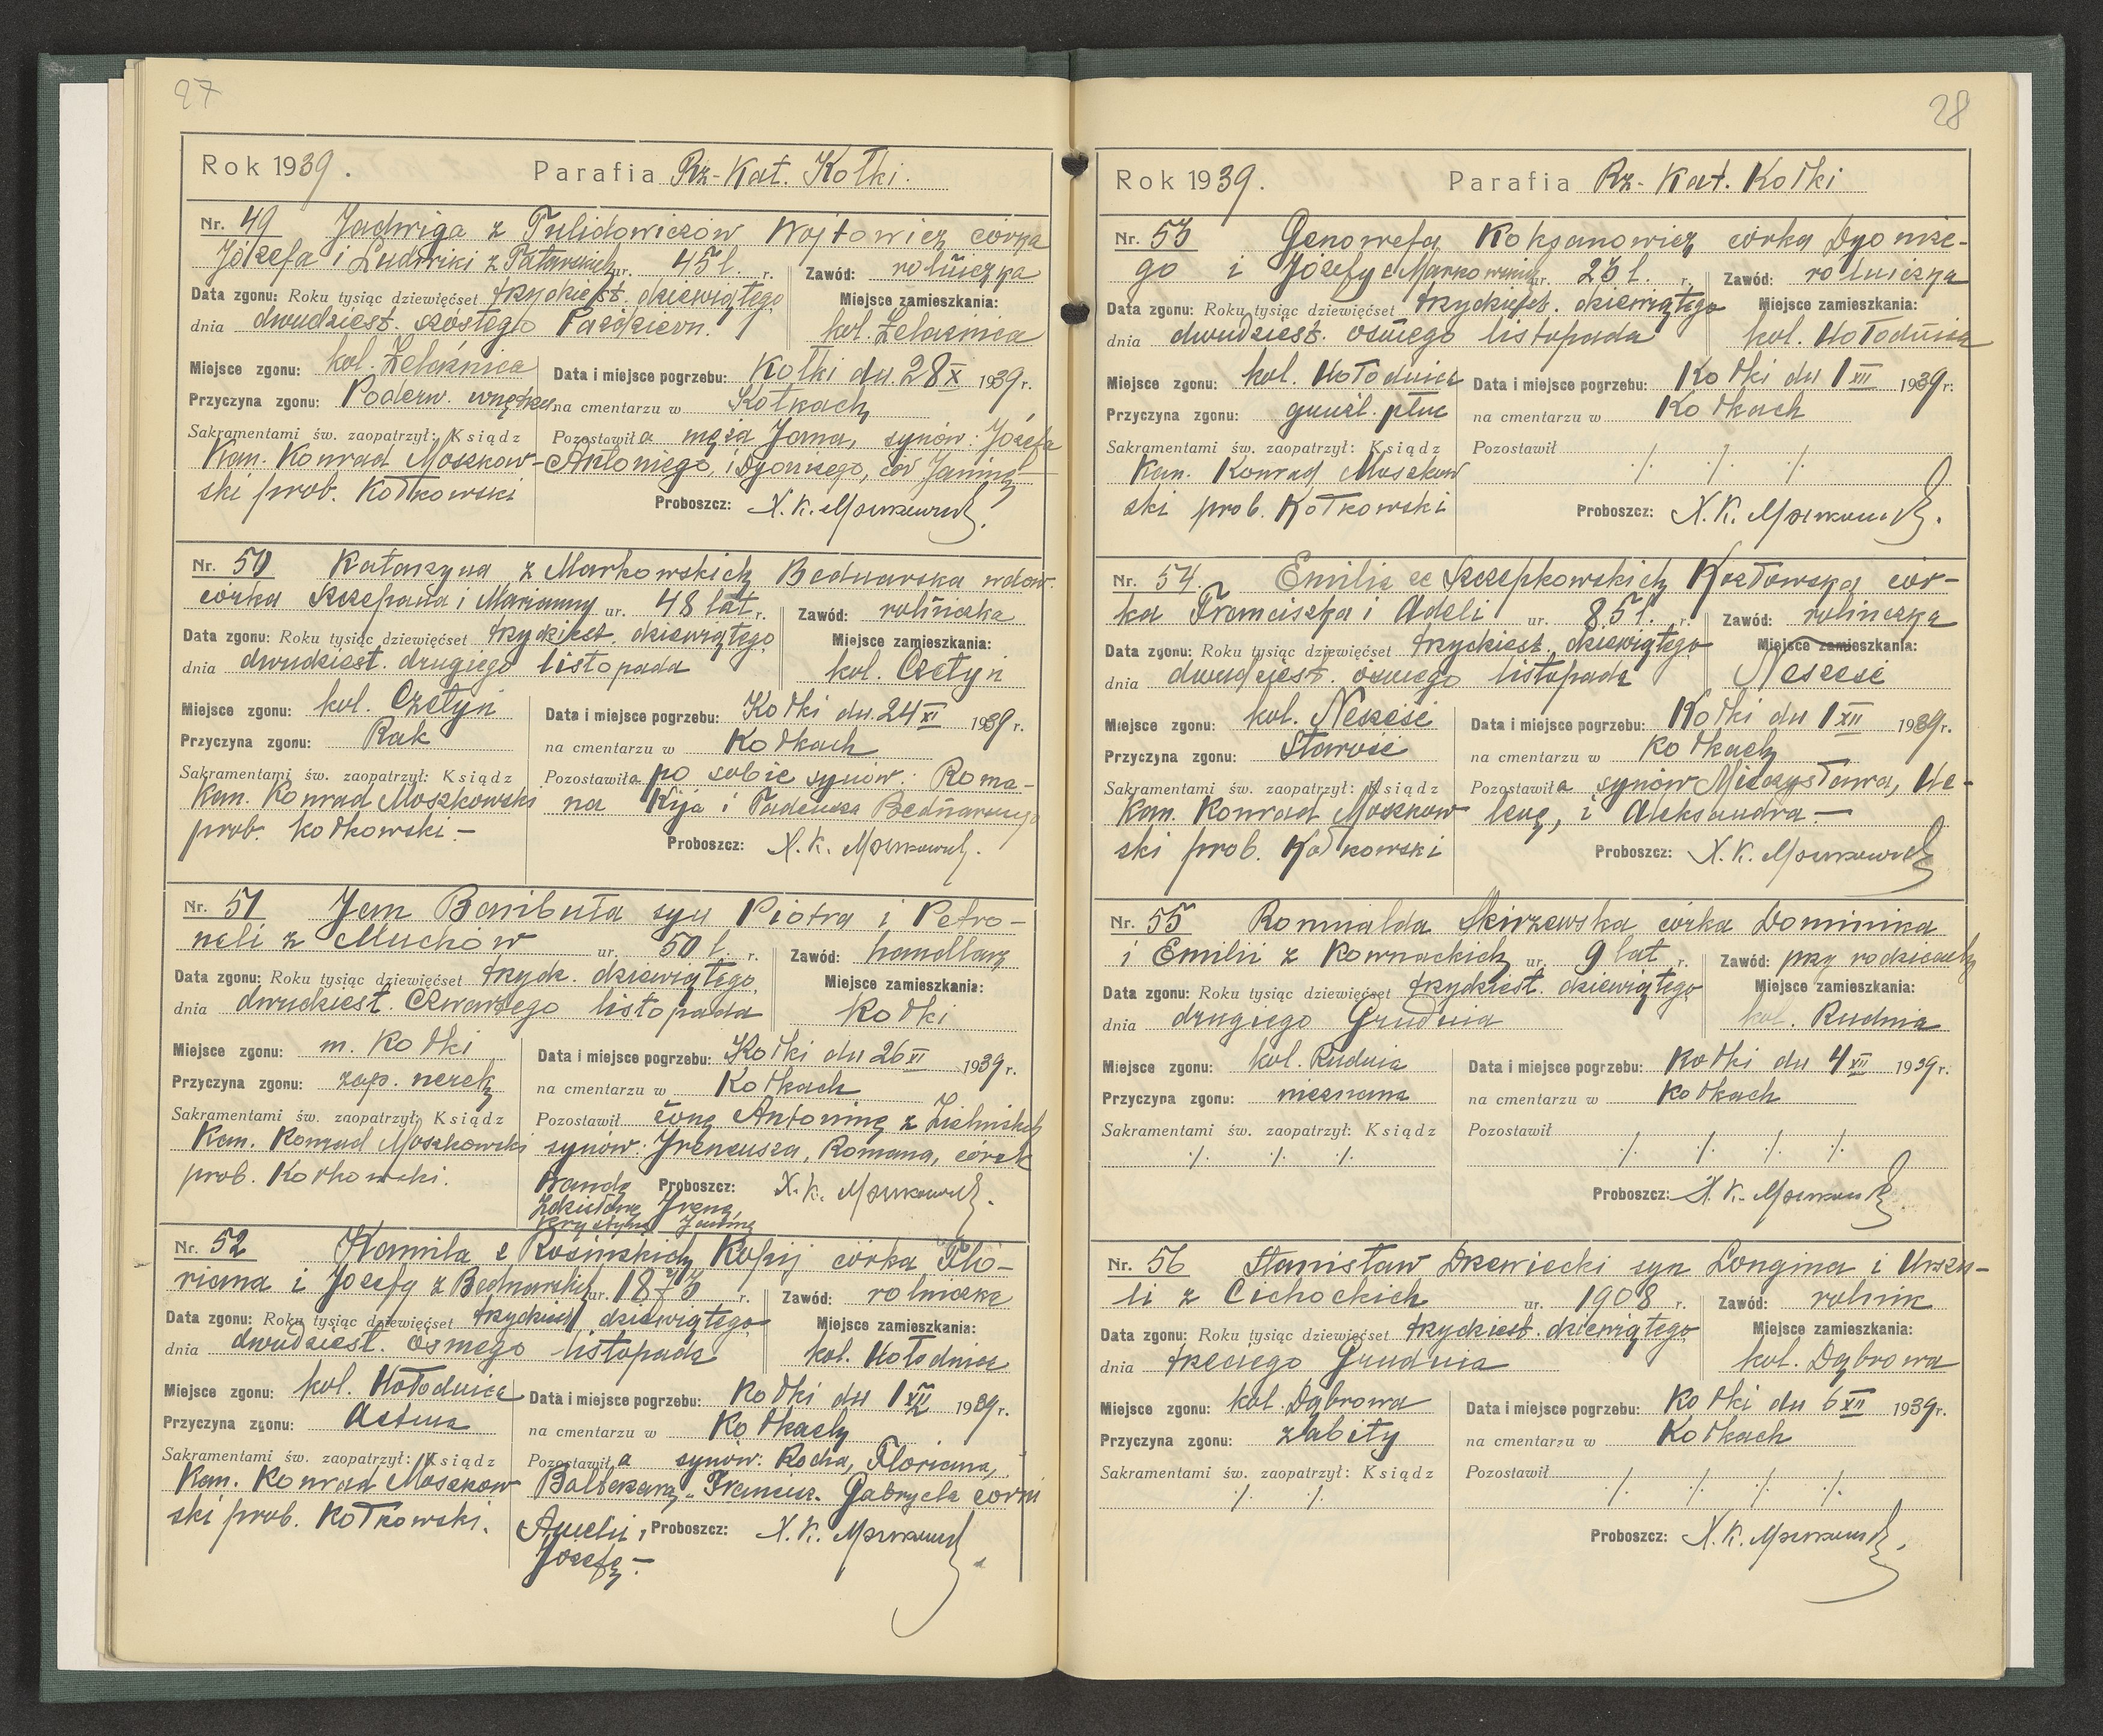 27
Rok 1939. Parafia Rz-Kat. Kołki.
Nr. 49 Jadwiga z Tulidowiczów Wojtowicz córka
Józefa i Ludwiki z ur. 45 l. r. Zawód: rolniczka
Data zgonu: Roku tysiąc dziewięćset trzydziest. dziewiątego Miejsce zamieszkania:
dnia dwudziest. szóstego Październ. kol. Żelaźnica
Miejsce zgonu: kol. Żelaźnica Data i miejsce pogrzebu: Kołki dn. 28 X 1939 r.
Przyczyna zgonu: Poderw. na cmentarzu w Kołkach
Sakramentami św. zaopatrzył: Ksiądz Pozostawiła męża Jana, synów: Józefa
Kan. Konrad Moszkow- Antoniego, i Dyonizego, cór Janinę
ski prob. Kołkowski
Proboszcz: X. K. Moszkowski.
Nr. 50 Katarzyna z Markowskich Bednarska wdow.
córka Szczepana i Marianny ur. 48 lat r. Zawód: rolniczka
Data zgonu: Roku tysiąc dziewięćset trzydziest. dziewiątego Miejsce zamieszkania:
dnia dwudziest. drugiego listopada kol. Czetyń
Miejsce zgonu: kol. Czetyń Data i miejsce pogrzebu: Kołki dn. 24 XI 1939 r.
Przyczyna zgonu: Rak na cmentarzu w Kołkach
Sakramentami św. zaopatrzył: Ksiądz Pozostawiła po sobie synów: Roma-
Kan. Konrad Moszkowski na Kija i Tadeusza Bednarskiego
prob. kołkowski -
Proboszcz: X. K. Moszkowski.
Nr. 51 Jan Banibuła syn Piotra i Petro-
neli z Muchów ur. 50 l. r. Zawód: handlarz
Data zgonu: Roku tysiąc dziewięćset trzydz. dziewiątego Miejsce zamieszkania:
dnia dwudziest. czwartego listopada Kołki
Miejsce zgonu: m. Kołki Data i miejsce pogrzebu: Kołki dn 26 XI 1939 r.
Przyczyna zgonu: zap. nerek na cmentarzu w Kołkach
Sakramentami św. zaopatrzył: Ksiądz Pozostawił żonę Antoninę z Zielińskich
Kan. Konrad Moszkowski synów: Ireneusza, Romana, córek
prob. Kołkowski. Wandę Proboszcz: X. K. Moszkowski.
Zdzisławę Irenę,
Krystynę Janinę
Nr. 52 Kamila z Rosińskich Kopij córka Flo-
riana i Józefy z Bednarskich ur. 1873 r. Zawód: rolniczka
Data zgonu: Roku tysiąc dziewięćset trzydziest dziewiątego Miejsce zamieszkania:
dnia dwudziest. ósmego listopada kol. Hołodnica
Miejsce zgonu: kol. Hołodnica Data i miejsce pogrzebu: Kołki dn 1 XII 1939 r.
Przyczyna zgonu: Astma na cmentarzu w Kołkach
Sakramentami św. zaopatrzył: Ksiądz Pozostawiła synów: Rocha, Floriana,
Kan. Konrad Moszkow Baltazara, Francisz. Gabryela córki
ski prob. Kołkowski. Amelii, Proboszcz: X. K. Moszkowski
Józefę -
28
Rok 1939. Parafia Rz-Kat. Kołki
Nr. 53 Genowefa Koksanowicz córka Dyonize-
go i Józefy z Markowskich ur. 23 l. r. Zawód: rolniczka
Data zgonu: Roku tysiąc dziewięćset trzydziest. dziewiątego Miejsce zamieszkania:
dnia dwudziest. ósmego listopada kol. Hołodnica
Miejsce zgonu: kol. Hołodnica Data i miejsce pogrzebu: Kołki dn 1 XII 1939 r.
Przyczyna zgonu: gruźl. płuc na cmentarzu w Kołkach
Sakramentami św. zaopatrzył: Ksiądz Pozostawił ./. ./. ./.
Kan. Konrad Moszkow
ski prob. Kołkowski Proboszcz: X. K. Moszkowski.
Nr. 54. Emilia ze Szczepkowskich Kozłowska cór-
ka Franciszka i Adeli ur. 85 l. r. Zawód: rolniczka
Data zgonu: Roku tysiąc dziewięćset trzydziest. dziewiątego Miejsce zamieszkania:
dnia dwudziest. ósmego listopada Nesześć
Miejsce zgonu: kol. Nesześć Data i miejsce pogrzebu: Kołki dn 1 XII 1939 r.
Przyczyna zgonu: Starość na cmentarzu w Kołkach
Sakramentami św. zaopatrzył: Ksiądz Pozostawiła synów Mieczysława, He-
Kan. Konrad Moszkow lenę, i Aleksandra. -
ski prob. Kołkowski Proboszcz: X. K. Moszkowski
Nr. 55 Romualda Skirzewska córka Dominika
i Emilii z Kownackich ur. 9 lat r. Zawód: przy rodzicach
Data zgonu: Roku tysiąc dziewięćset trzydziest. dziewiątego Miejsce zamieszkania:
dnia drugiego Grudnia kol. Rudnia
Miejsce zgonu: kol. Rudnia Data i miejsce pogrzebu: Kołki dn 4 XII 1939 r.
Przyczyna zgonu: nieznana na cmentarzu w Kołkach
Sakramentami św. zaopatrzył: Ksiądz Pozostawił
./. ./. ./. ./. ./. ./. ./.
Proboszcz: X. K. Moszkowski
Nr. 56 Stanisław Drzewiecki syn Longina i Urszu-
li z Cichockich ur. 1908 r. Zawód: rolnik
Data zgonu: Roku tysiąc dziewięćset trzydziest. dziewiątego Miejsce zamieszkania:
dnia trzeciego Grudnia kol. Dąbrowa
Miejsce zgonu: kol. Dąbrowa Data i miejsce pogrzebu: Kołki dn 6 XII 1939 r.
Przyczyna zgonu: zabity na cmentarzu w Kołkach
Sakramentami św. zaopatrzył: Ksiądz Pozostawił
./. ./. ./. ./. ./. ./.
Proboszcz: X. K. Moszkowski.